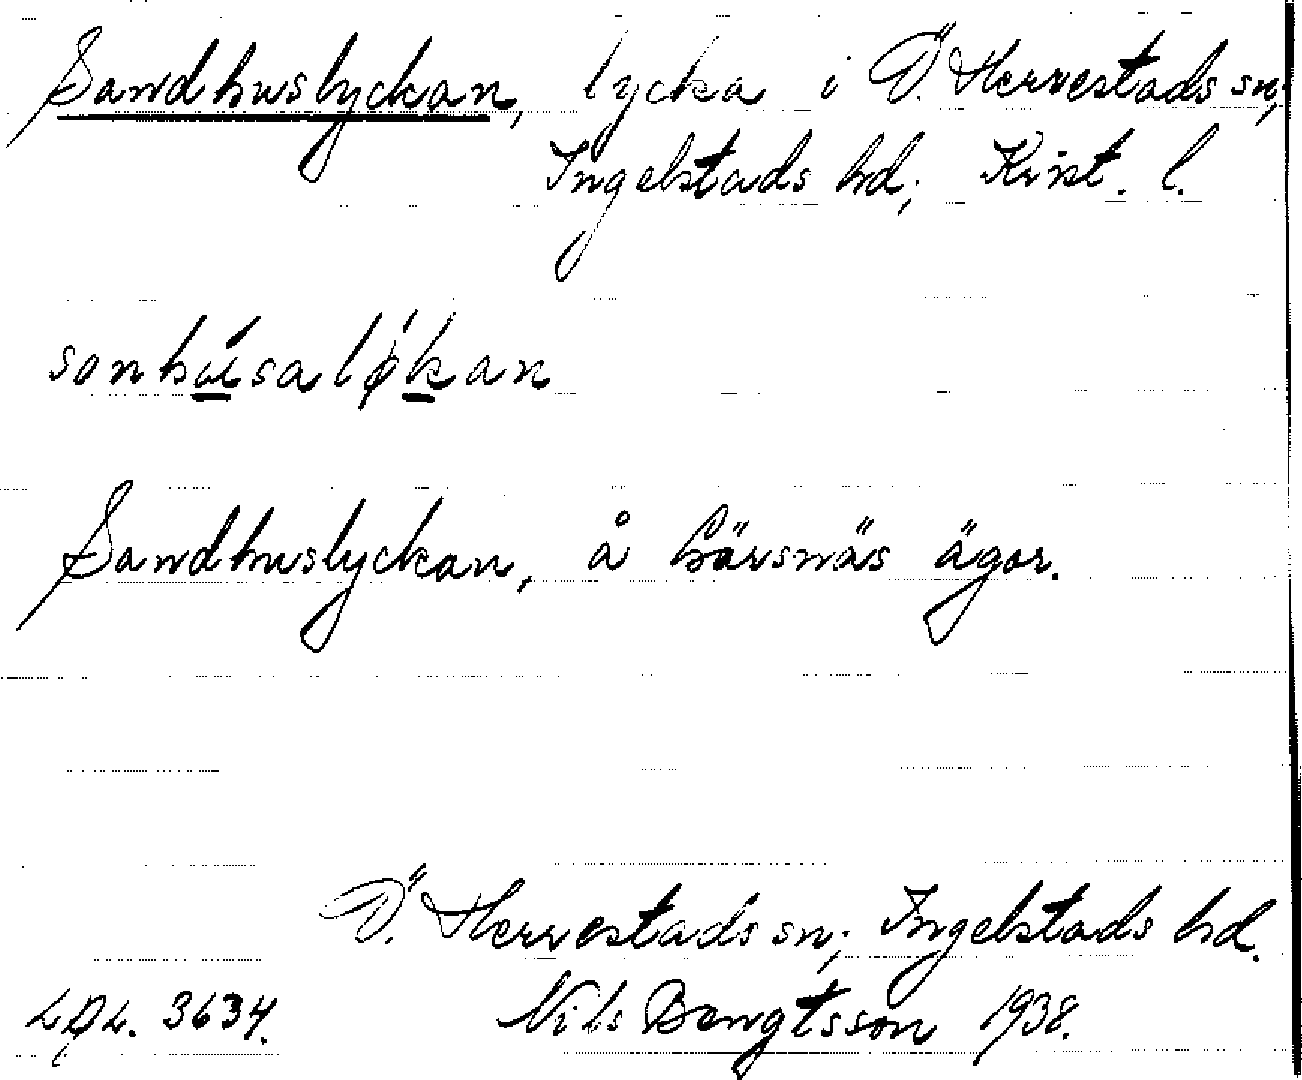 Sandhuslyckan, lycka i Ö. Herrestads sn,
Ingelstads hd; Krist. l.
sonhúsaløkan
Sandhuslyckan, å Gärsnäs ägor.
Ö. Herrestads sn; Ingelstads hd.
Nils Bengtsson 1938.
3634.